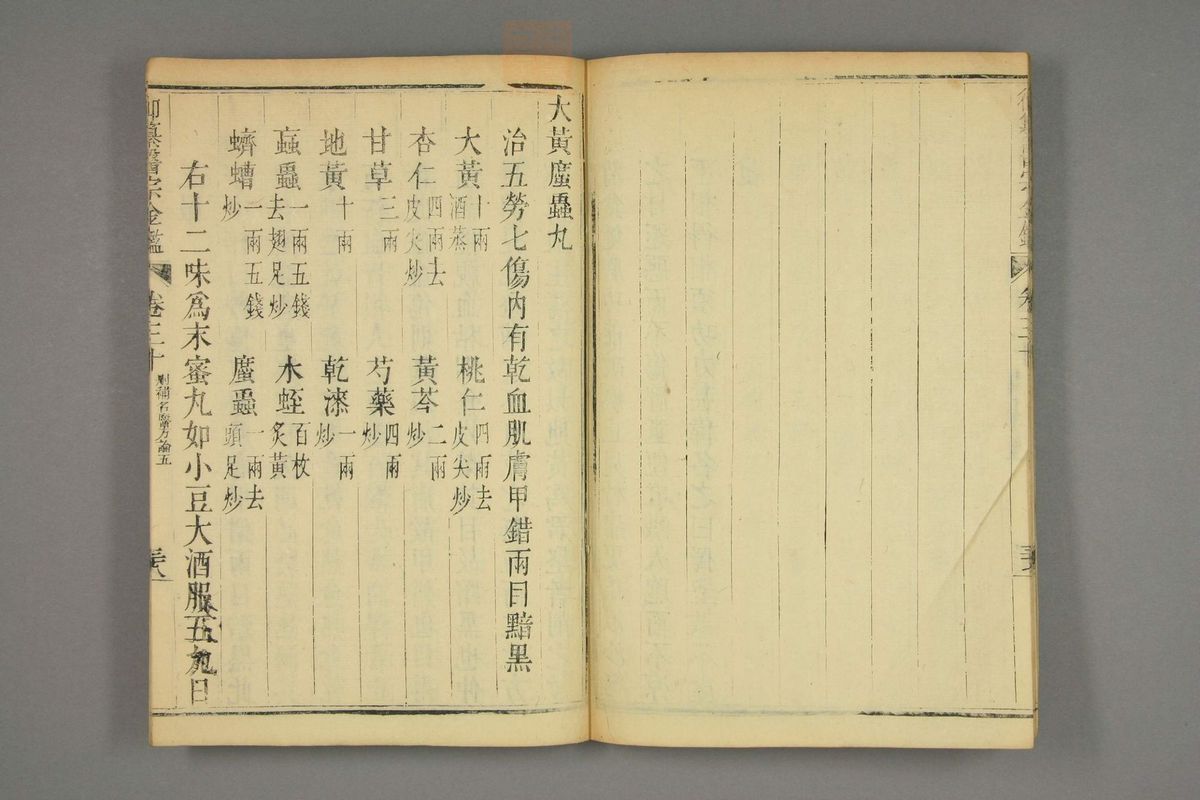 大黃䗪蟲丸
治五勞七傷内有乾血肌膚甲錯兩目黯黒
大黃十兩酒蒸 桃仁四兩去皮尖炒
杏仁四兩去皮尖炒 黃芩二兩炒
甘草三兩 芍藥四兩炒
地黃十兩 乾漆一兩炒
蝱蟲一兩五錢去翅足炒 水蛭百枚炙黃
蠐螬一兩五錢炒 䗪蟲一兩去頭足炒
右十二味爲末蜜丸如小豆大酒服五丸日
御纂醫宗金鑑 卷三十 刪補名醫方論五 三六